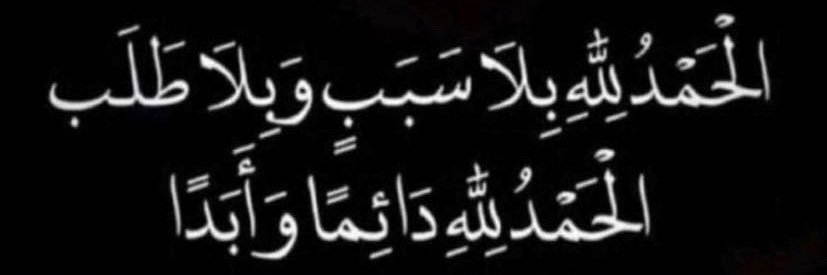 الْحَمْدُ لِلّٰهِ بِلَا سَبَبٍ وَبِلَا طَلَب
الْحَمْدُ لِلّٰهِ دَائِمًا وَأَبَدًا